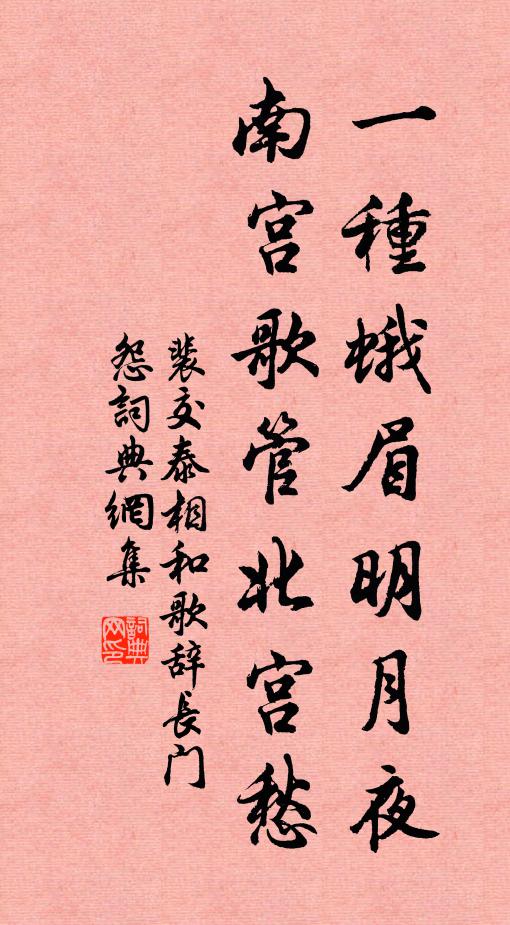 一種蛾眉明月夜
南宮歌管北宮愁
裴交泰相和歌辞長門
怨詞典網集
詞典
网印